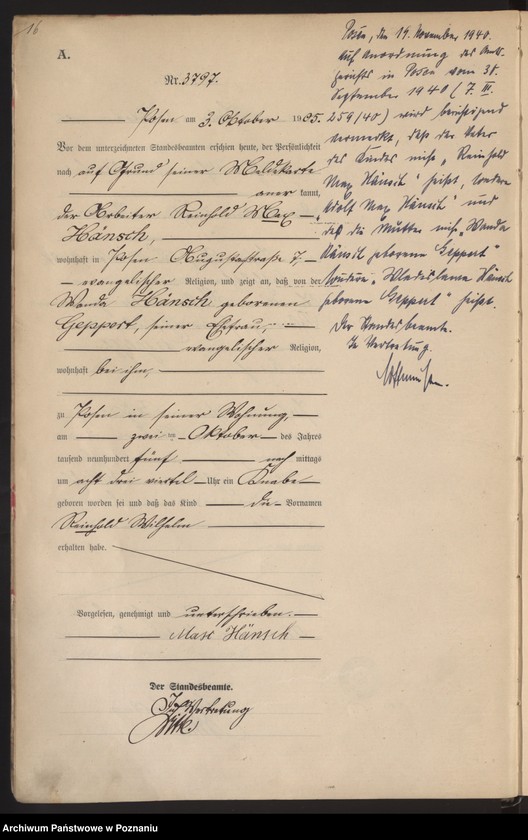 16
A.
Nr. 3797.
Posen am 3. Oktober 1905.
Vor dem unterzeichneten Standesbeamten erschien heute, der Persönlichkeit
nach auf Grund seiner Meldekarte
anerkannt,
der Arbeiter Reinhold Max
Hänsch,
wohnhaft in Posen Augustastraße 7
evangelischer Religion, und zeigt an, daß von der
Wanda Hänsch geborenen
Geppert, seiner Ehefrau,
evangelischer Religion,
wohnhaft bei ihm,
zu Posen in seiner Wohnung,
am zwei ten Oktober des Jahres
tausend neunhundert fünf nach mittags
um acht drei viertel Uhr ein Knabe
geboren worden sei und daß das Kind die Vornamen
Reinhold Wilhelm
erhalten habe.
Vorgelesen, genehmigt und unterschrieben.
Max Hänsch
Der Standesbeamte.
In Vertretung
Posen, den 19. November 1940.
Auf Anordnung des Amts-
gerichts in Posen vom 30.
September 1940 (7. III.
259/40) wird berichtigend
vermerkt, daß der Vater
des Kindes nicht „Reinhold
Max Hänsch" heißt, sondern
„Adolf Max Hänsch" und
daß die Mutter nicht „Wanda
Hänsch geborene Geppert"
sondern „Wladislawa Hänsch
geborene Geppert" heißt.
Der Standesbeamte.
In Vertretung.
Archiwum Państwowe w Poznaniu